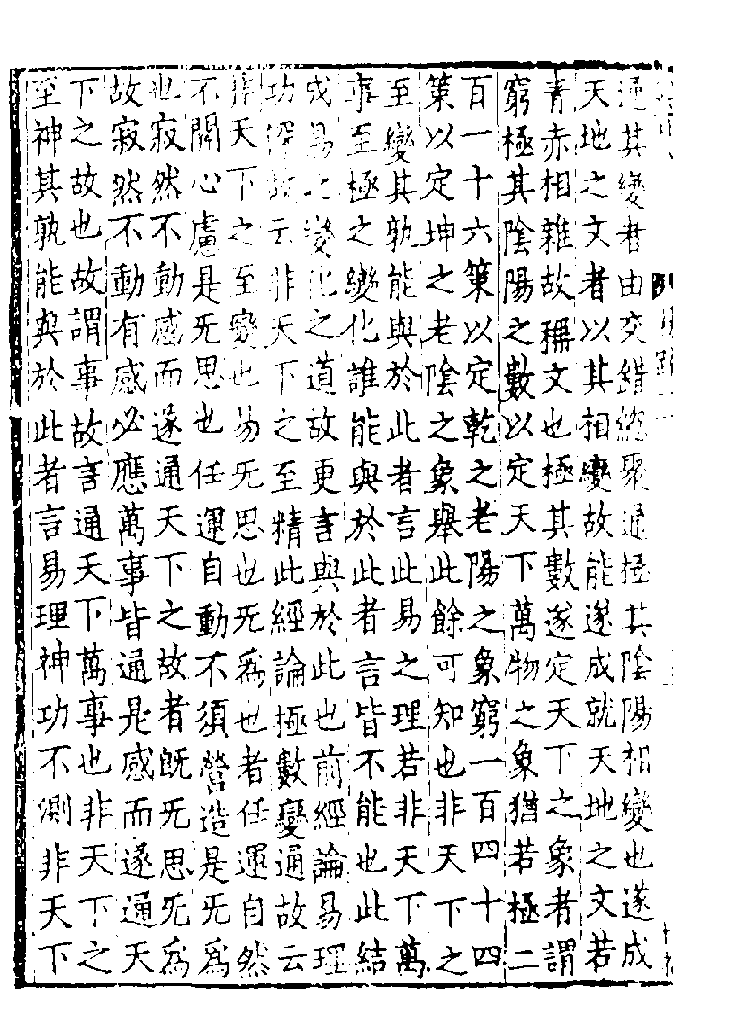 通其變者由交錯緫聚通極其陰陽相變也遂成
天地之文者以其相變故能遂成就天地之文若
青赤相雜故稱文也極其數遂定天下之象者謂
窮極其陰陽之數以定天下萬物之象猶若極二
百一十六策以定乾之老陽之象窮一百四十四
策以定坤之老陰之象舉此餘可知也非天下之
至變其孰能與於此者言此易之理若非天下萬
事至極之變化誰能與於此者言皆不能也此結
成易之變化之道故更言與於此也前經論易理
功深故云非天下之至精此經論極數變通故云
非天下之至變也易无思也无爲也者任運自然
不關心慮是无思也任運自動不須營造是无爲
也寂然不動感而遂通天下之故者旣无思无爲
故寂然不動有感必應萬事皆通是感而遂通天
下之故也故謂事故言通天下萬事也非天下之
至神其孰能與於此者言易理神功不測非天下